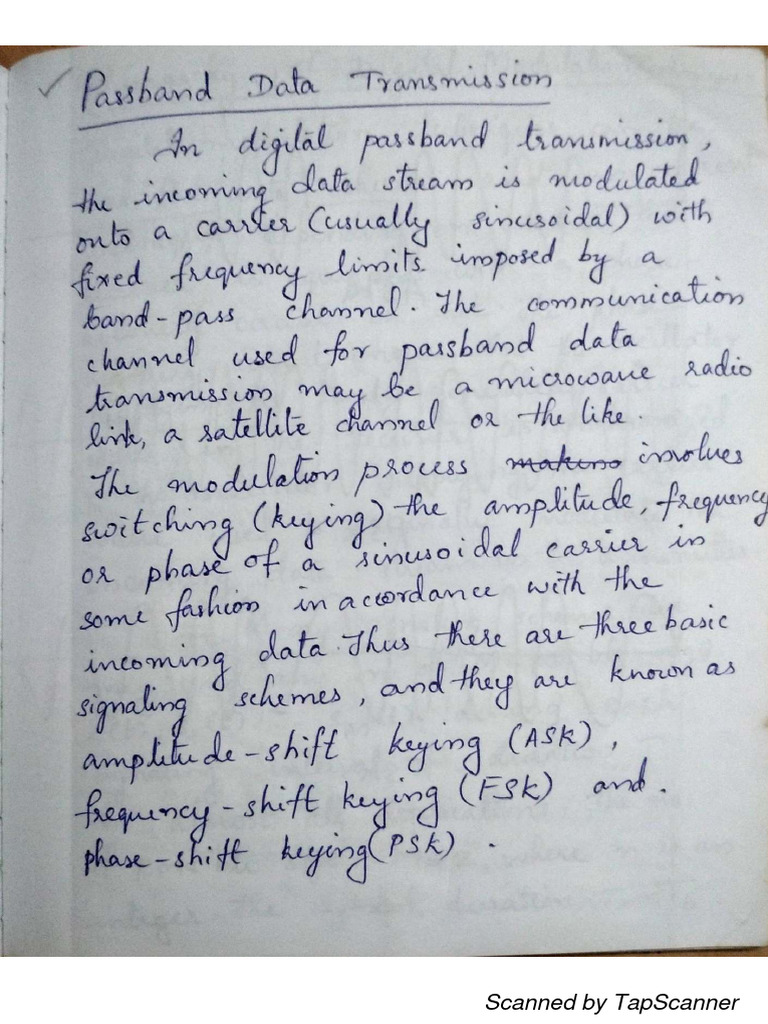 Passband Data Transmission
In digital passband transmission,
the incoming data stream is modulated
onto a carrier (usually sinusoidal) with
fixed frequency limits imposed by a
band-pass channel. The communication
channel used for passband data
transmission may be a microwave radio
link, a satellite channel or the like.
The modulation process makins involves
switching (keying) the amplitude, frequency
or phase of a sinusoidal carrier in
some fashion in accordance with the
incoming data. Thus there are three basic
signaling schemes, and they are known as
amplitude-shift keying (ASK),
frequency-shift keying (FSK) and.
phase-shift keying (PSK).
Scanned by TapScanner